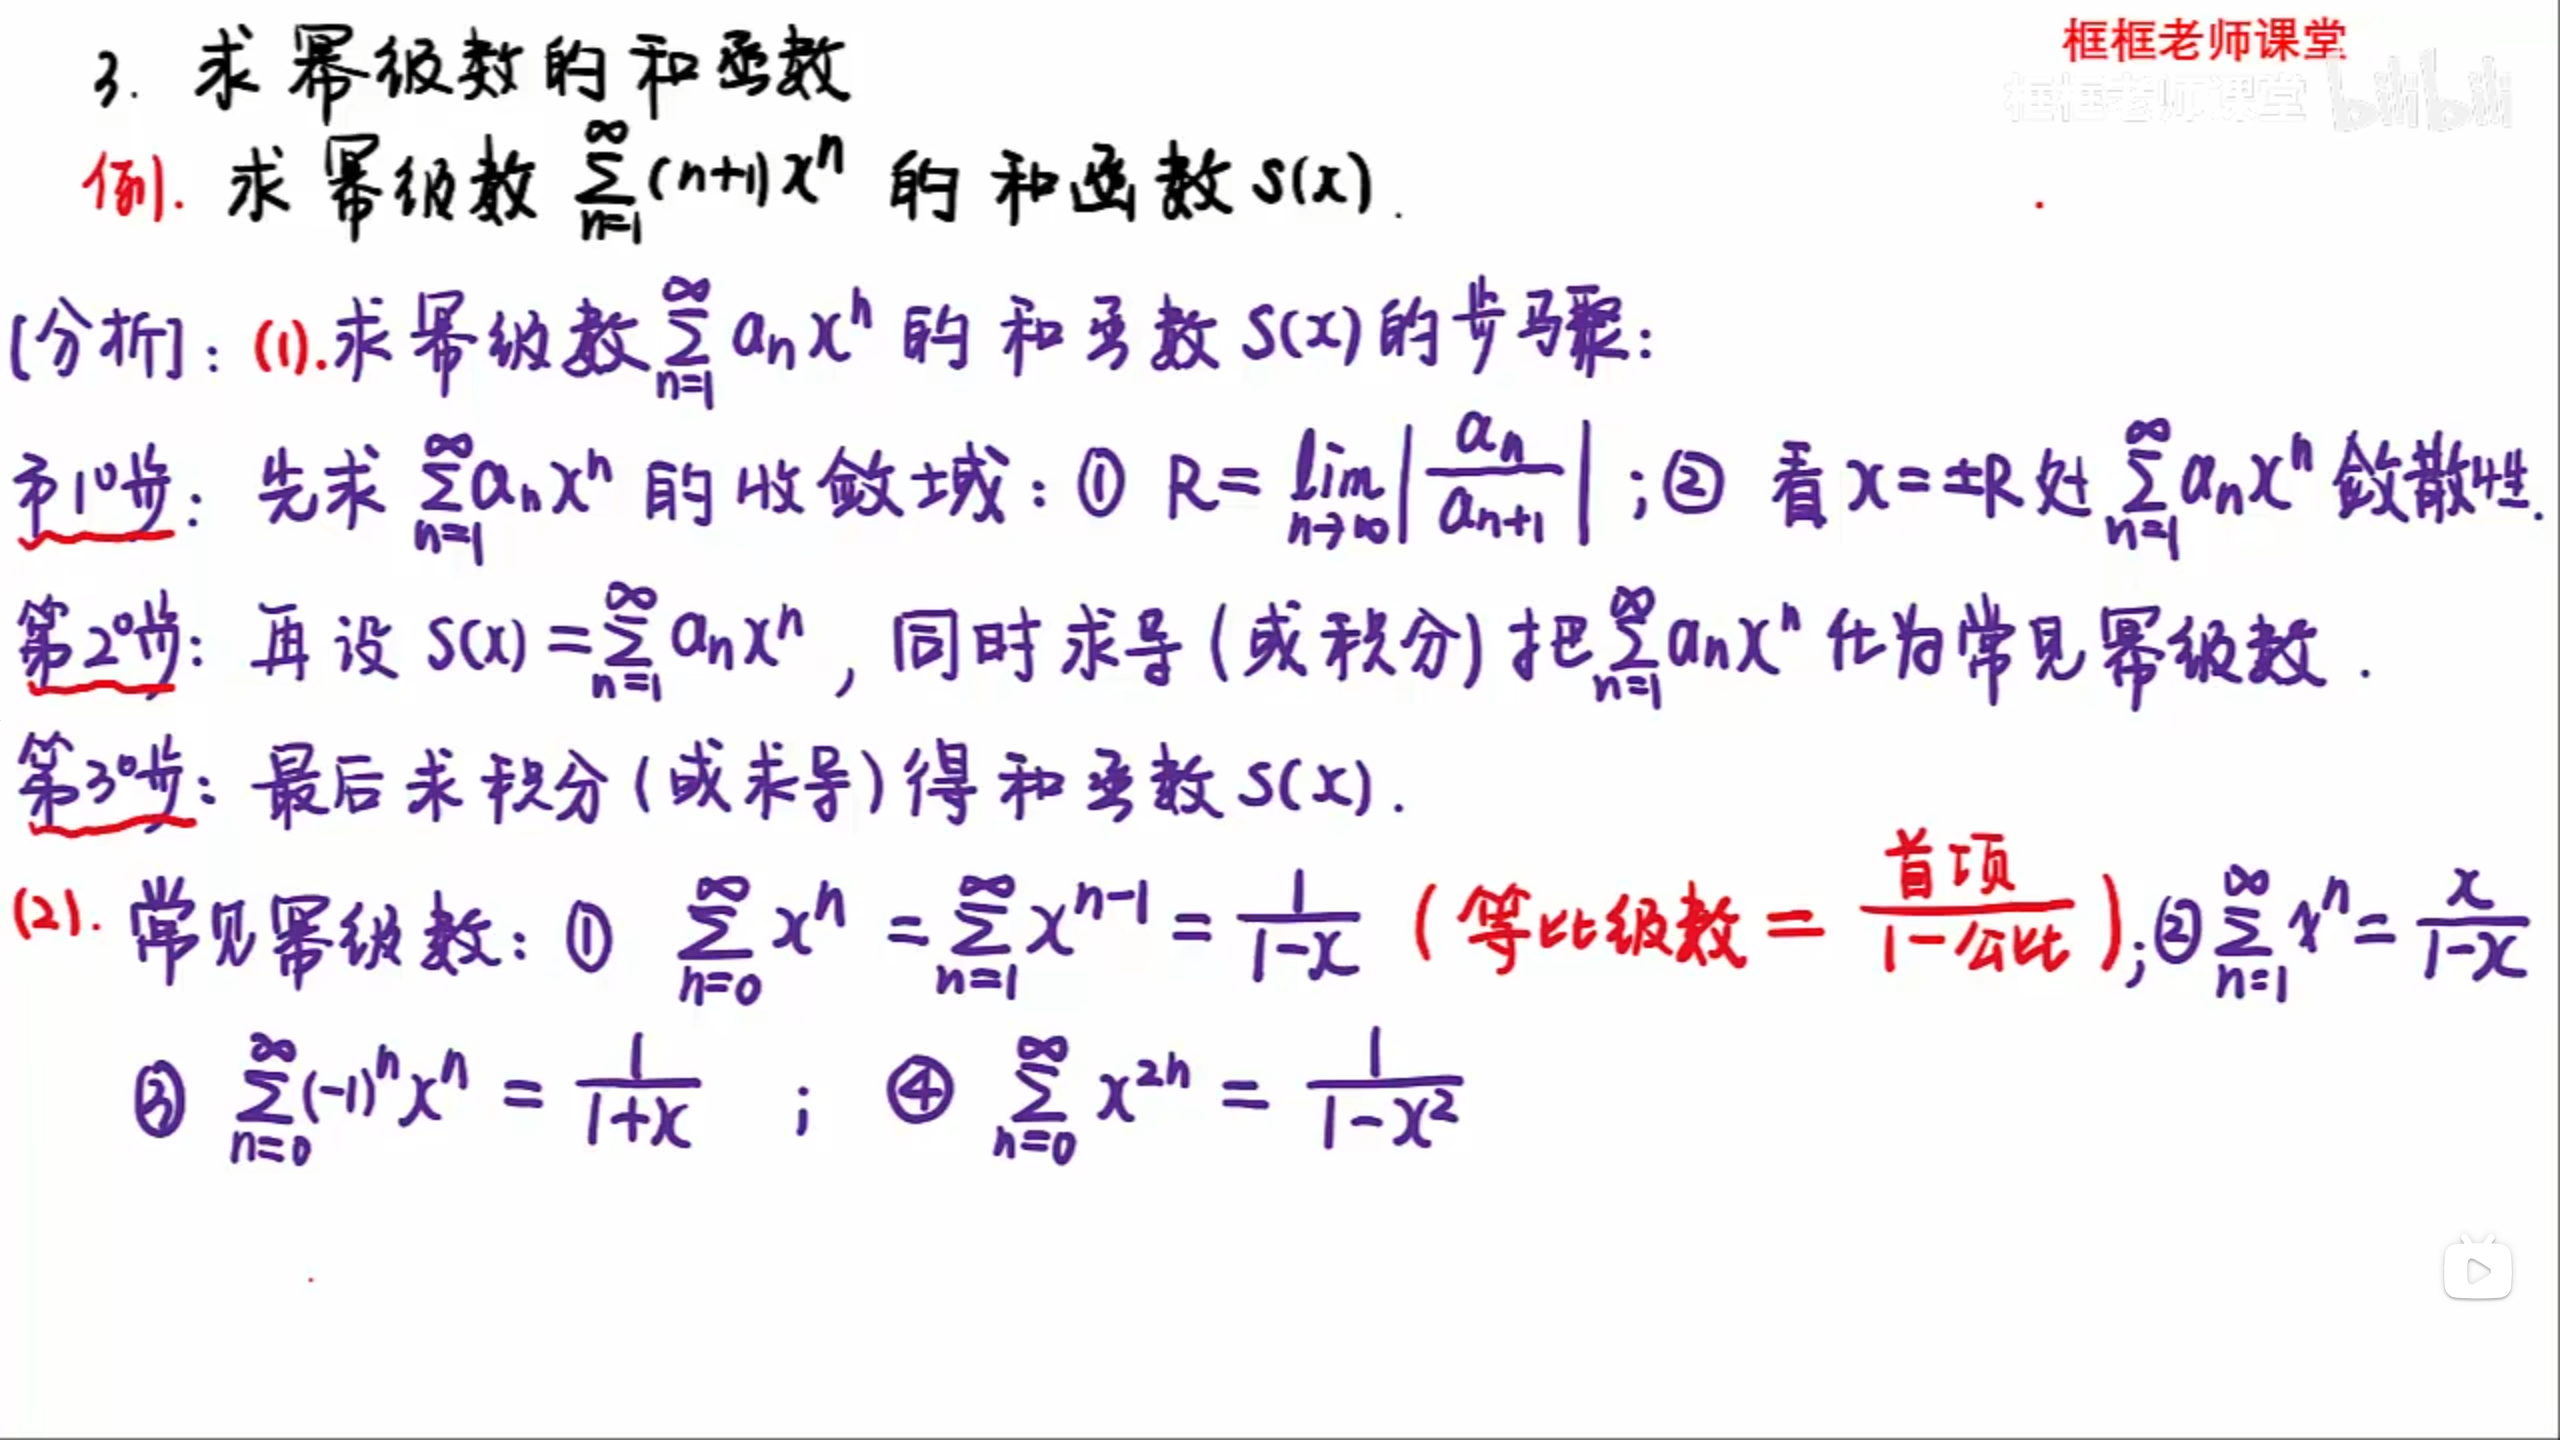 框框老师课堂
框框老师课堂 bilibili
3. 求幂级数的和函数
例. 求幂级数 ∑_{n=1}^{∞} (n+1)x^n 的和函数 S(x).
[分析]: (1). 求幂级数 ∑_{n=1}^{∞} a_n x^n 的和函数 S(x) 的步骤:
第1°步: 先求 ∑_{n=1}^{∞} a_n x^n 的收敛域: ① R = lim_{n→∞} |a_n / a_{n+1}| ; ② 看 x = ±R 处 ∑_{n=1}^{∞} a_n x^n 敛散性.
第2°步: 再设 S(x) = ∑_{n=1}^{∞} a_n x^n , 同时求导(或积分)把 ∑_{n=1}^{∞} a_n x^n 化为常见幂级数.
第3°步: 最后求积分(或求导)得和函数 S(x).
(2). 常见幂级数: ① ∑_{n=0}^{∞} x^n = ∑_{n=1}^{∞} x^{n-1} = 1/(1-x) (等比级数 = 首项/(1-公比)); ② ∑_{n=1}^{∞} x^n = x/(1-x)
③ ∑_{n=0}^{∞} (-1)^n x^n = 1/(1+x) ; ④ ∑_{n=0}^{∞} x^{2n} = 1/(1-x^2)